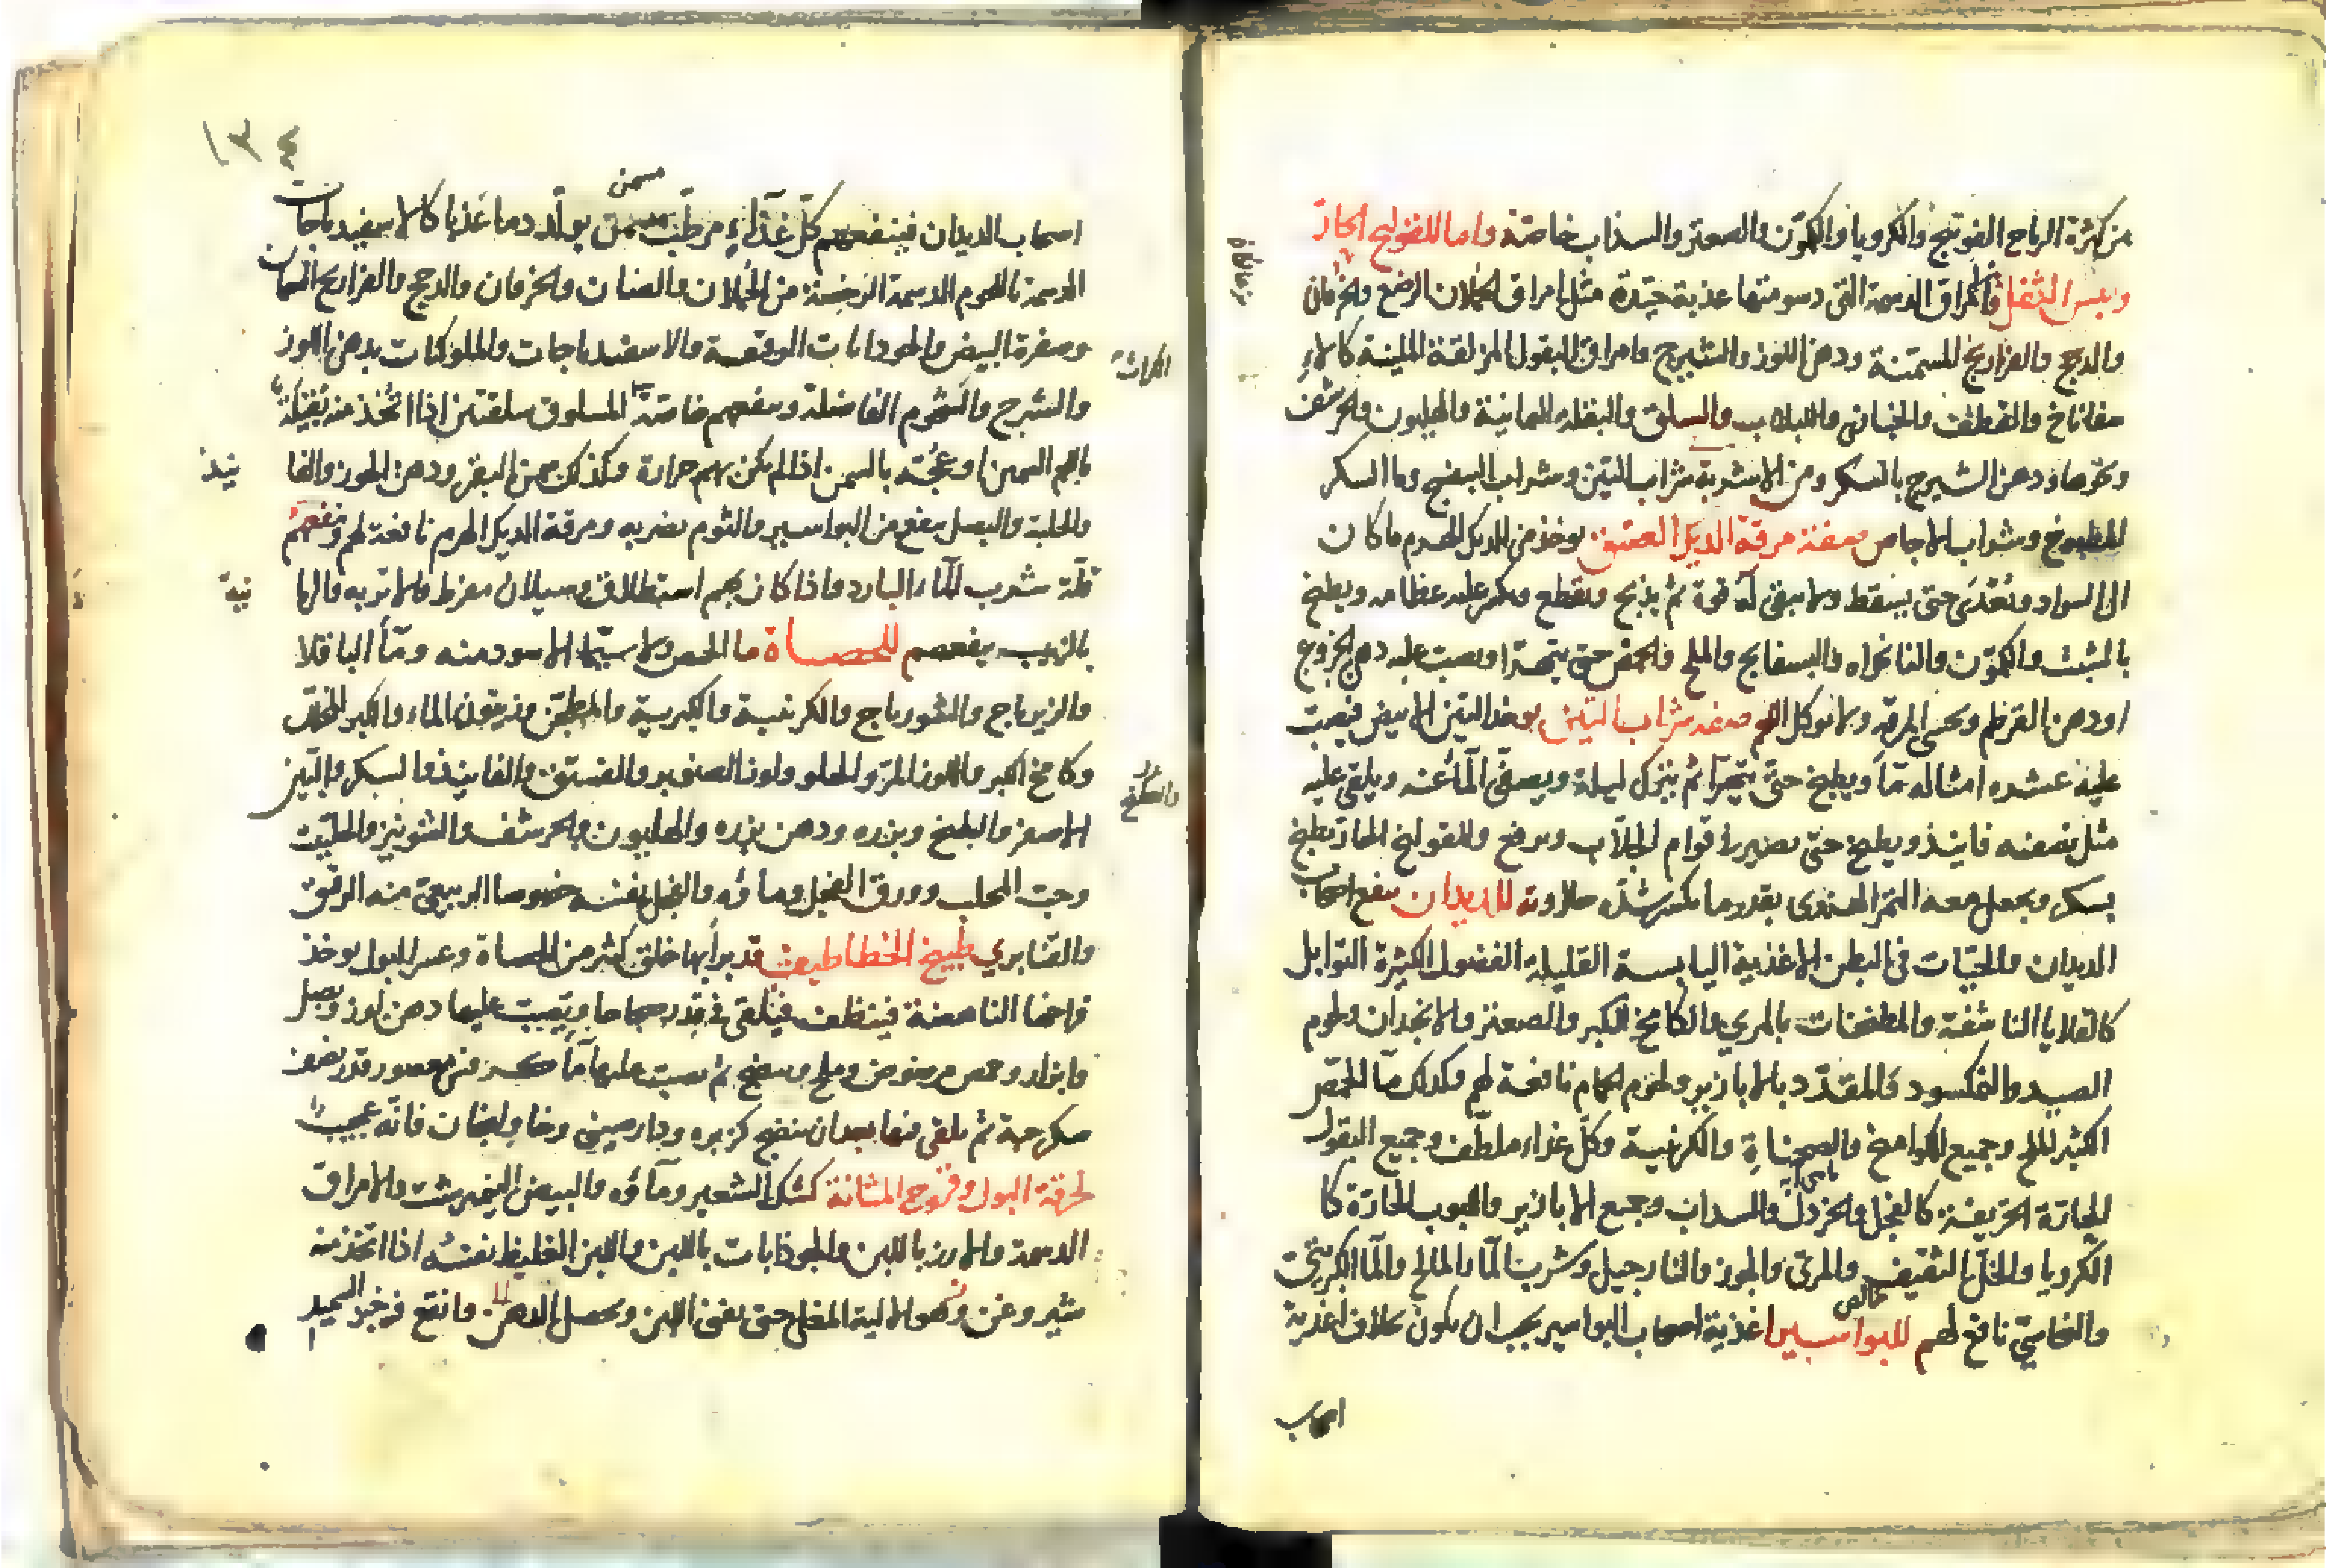 من كثرة الرياح الفوتنج والكرويا والكمون والصعتر والسذاب خاصة واما للقولنج الحار
وعسر الثفل فامراق الدسمة التي دسومتها عذبة جيدة مثل امراق الحملان الرضع والخرفان
والدجج والفراريج المسمنة ودهن اللوز والشيرج وامراق البقول المزلقة الملينة كالا
سفاناخ والقطف والخبازى واللبلاب والسلق والبقلة اليمانية والهليون والحرشف
ودهن الشيرج بالسكر ومن الاشربة شراب التين وشراب البنفسج وما السكر
المطبوخ وشراب الاجاص صفة مرقة الديك العتيق يوخذ من الديك الهرم ما كان
الى السواد ويعدى حتى يسقط ولا يبقى له قوة ثم يذبح ويقطع ويكسر عليه عظامه ويطبخ
بالشبث والكمون والنانخواه والبسفايج والملح والحمص حتى يتهرا ويصب عليه دهن الخروع
او دهن القرطم ويحسى المرقه ولا يوكل اللحم صفة شراب التين يوخذ التين الابيض فيصب
عليه عشرة امثاله ما ويطبخ حتى يتهرأ ثم يترك ليلة ويصفى الماء عنه ويلقى عليه
مثل نصفه فانيذ ويطبخ حتى يصير في قوام الجلاب ويرفع وللقولنج الحار يطبخ
بسكر ويجعل معه التمر الهندي بقدر ما يكسر شدة حلاوته للديدان ينفع اصحاب
الديدان والحيات في البطن الاغذية اليابسة القليلة الفضول الكثيرة التوابل
كالقلايا الناشفة والمطجنات بالمري والكامخ الكبر والصعتر والانجدان ولحوم
الصيد والنمكسود والمقدد بالابازير ولحوم الحمام نافعة لهم وكذلك ما الحمص
الكثير الملح وجميع الكوامخ والصحناة والكرنبية وكل غذاء ملطف وجميع البقول
الحارة الحريفة كالفجل والخردل والسداب وجميع الابازير والحبوب الحارة كا
الكرويا والخل الثقيف والمري والجوز والنارجيل وشرب الماء المالح والماء الكبريتي
والنحاسي نافع لهم للبواسير اغذية اصحاب البواسير يجب ان يكون بخلاف اغذية
اصحاب
١٣٤
اصحاب الديدان فينفعهم كل غذاء مرطب مسمن يولد دما عذبا كالاسفيدباجات
مسمن
الدسمة باللحوم الدسمة الرخصة من الحملان والضان والخرفان والدجج والفراريج السمان
وصفرة البيض والجوذابات والاسفيدباجات والملوكات بدهن اللوز
والشيرج والشحوم الفاضلة وينفعهم خاصة المسلوق سلقتين اذا اتخذ منه بقيلة
الكراث
باللحم السمين او عجة بالسمن اذا لم يكن بهم حرارة وكذلك سمن البقر ودهن الجوز والفا
نيذ
والحلبة والبصل ينفع من البواسير والثوم يضر به ومرقة الديك الهرم نافعة لهم وينفعهم
قلة شرب الماء البارد واذا كان بهم استطلاق وسيلان مفرط
بالزبيب ينفعهم للحصاة ما الحمص ولا سيما الاسود منه وما الباقلا
والزيرباج والشورباج والكرنبية والكبرية والمطجن وزيتون الماء والكبر المخلل
وكامخ الكبر واللوز المر والحلو ولوز الصنوبر والفستق والفانيذ والسكر والتين
الاصفر والبطيخ وبزره ودهن بزره والهليون والحرشف والشونيز والحلتيت
وحب المحلب وورق الفجل وماؤه والفجل نفسه خصوصا الربيعي منه الرقيق
والقنابري طبيخ الخطاطيف قد برأ بها خلق كثير من الحصاة وعسر البول يوخذ
فراخها الناهضة فينظف فيلقى في قدر صحاحا ويصب عليها دهن لوز وبصل
وابزار وحمص مرضوض وملح ثم يصب عليها ما
سكرجة ثم يلقى فيها بعد ان ينضج كزبره ودارصيني وخاولنجان فانه عجيب
لحرقة البول وقروح المثانة كشك الشعير وماؤه والبيض النيمرشت والامراق
الدسمة والارز باللبن والجوذابات باللبن واللبن الغليظ نفسه اذا اتخذ منه
وهو الالية المغلي حتى يفنى اللبن ويحصل الدهن وانقع في خبز السميد